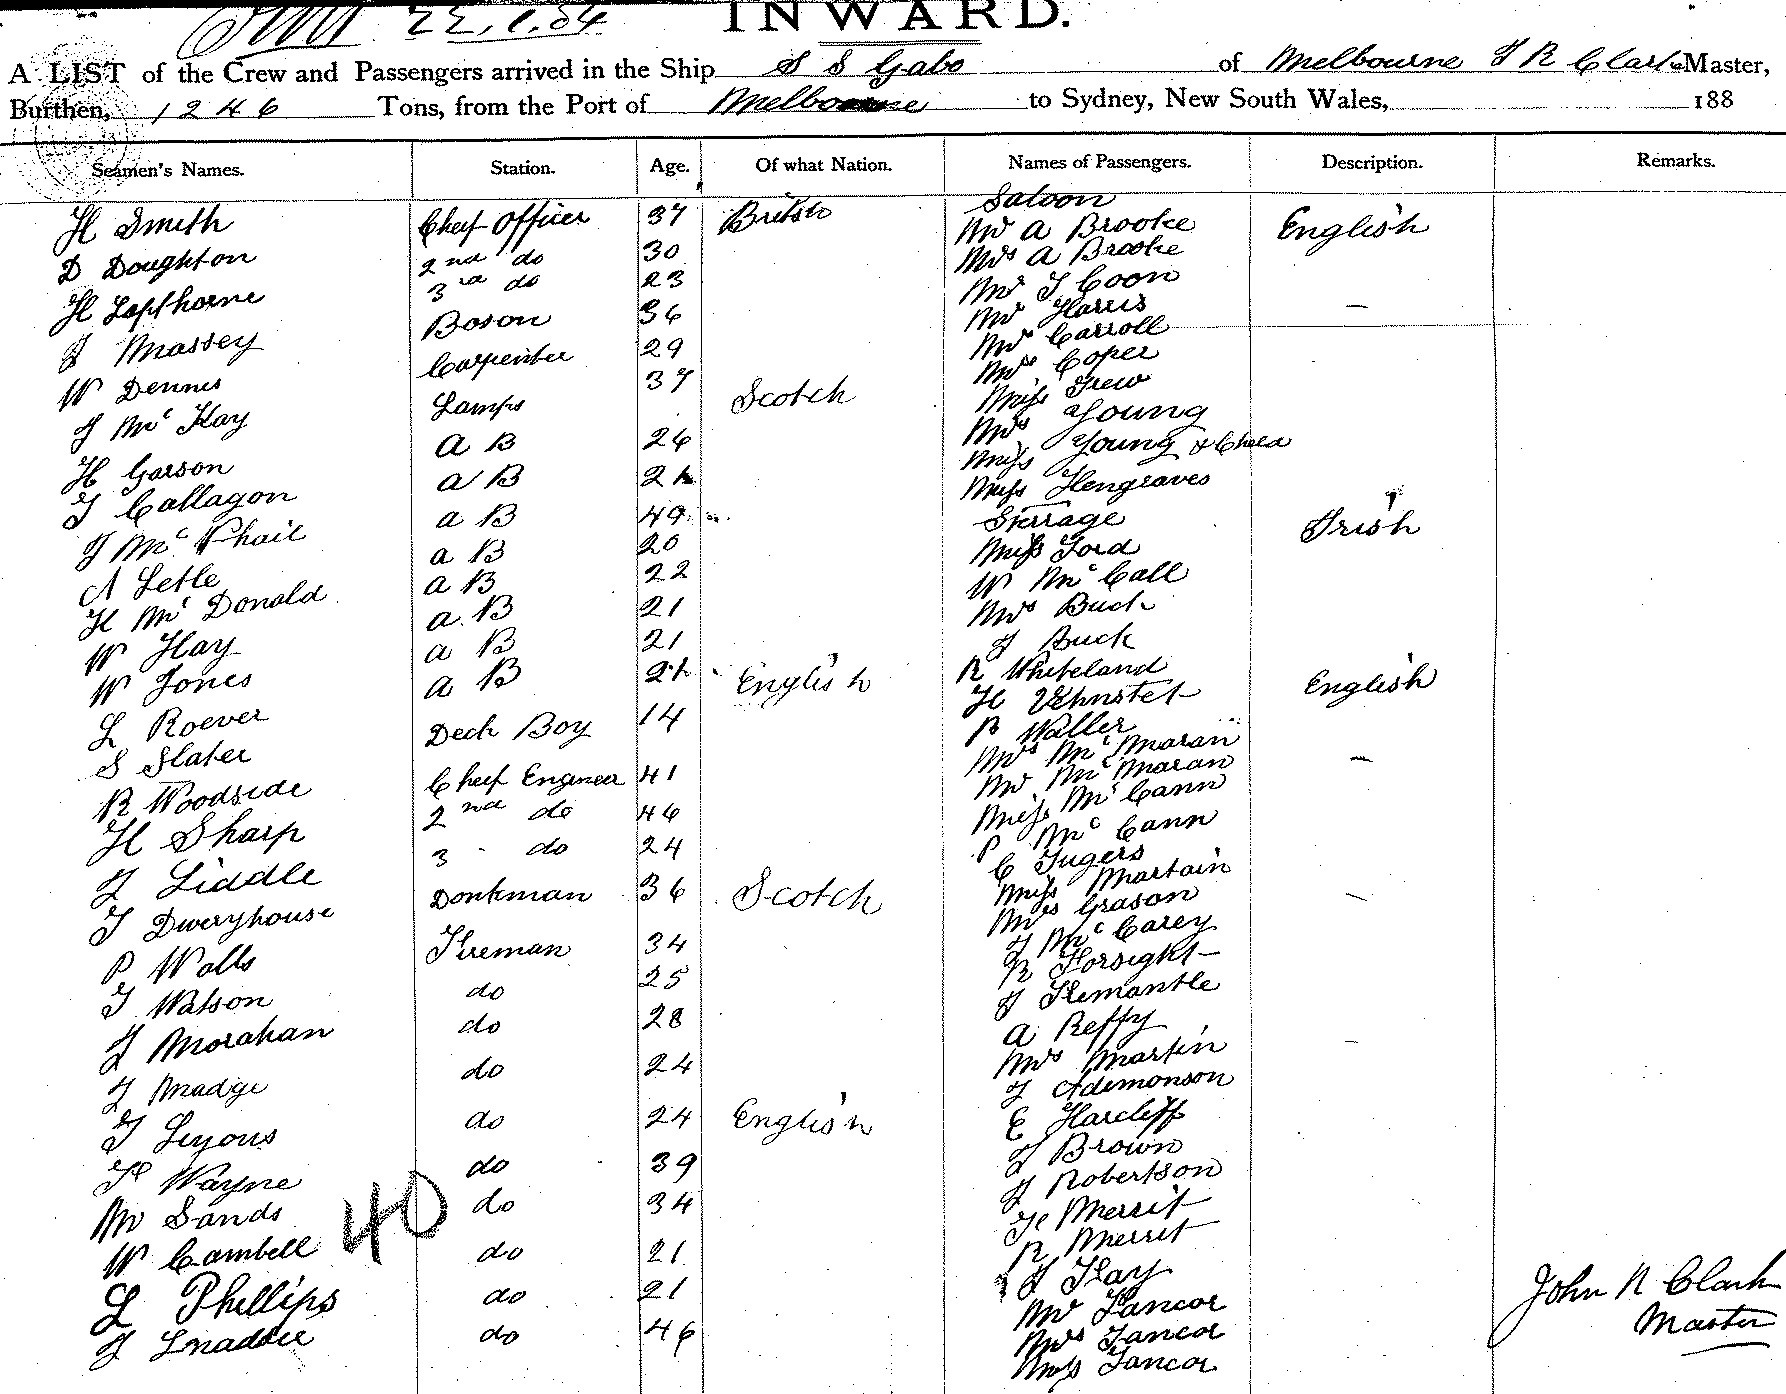 22.1.84
INWARD.
A LIST of the Crew and Passengers arrived in the Ship S S Gabo of Melbourne J R Clark Master,
Burthen, 1246 Tons, from the Port of Melbourne to Sydney, New South Wales, 188
Seamen's Names. Station. Age. Of what Nation. Names of Passengers. Description. Remarks.
Saloon
H Smith Cheif Officer 37 British Mr A Brooke English
D Doughton 2nd do 30 Mrs A Brooke
H Lapthorne 3rd do 23 Mr J Coon
J Massey Boson 36 Mr Harris —
W Dennis Carpenter 29 Mr Carroll
J McKay Lamps 37 Scotch Mrs Coper
Miss Trew
H Garson A B 26 Mrs Young
T Callagon A B Miss Young & Child
J McPhail A B 49 Miss Hengraves
Steerage Irish
A Letle A B 20 Miss Ford
H McDonald A B 22 W McCall
W Hay A B 21 Mrs Buck
W Jones A B 21 J Buck
L Roever A B English R Whiteland
H English
S Slater Deck Boy 14 R Waller
R Woodside Cheif Engineer 41 Mrs McMaran —
H Sharp 2nd do 46 Mr McMaran
J Liddle 3 do 24 Miss McCann
T Dweryhouse Donkman 36 Scotch P McCann
P Walls Fireman 34 C Jugers
T Watson do 25 Miss Martain —
J Morahan do 28 Mrs Grason
J Madge do 24 J McCarey
T Lyons do 24 English R Forsight
H Wayne do 39 J Fremantle
M Sands do 34 A Reffy
W Cambell do 21 Mrs Martin —
L Phillips do 21 J Ademonson
J do 46 E Harcliff
J Brown
J Robertson
H Merrit
R Merrit
J Hay
Mr Fancor
Mrs Fancor
Miss Fancor
40
John R Clark
Master